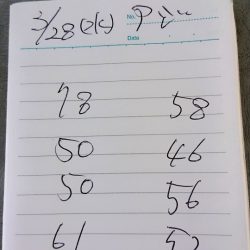 3/28(火)
No.
Date
78 58
50 46
50 56
61